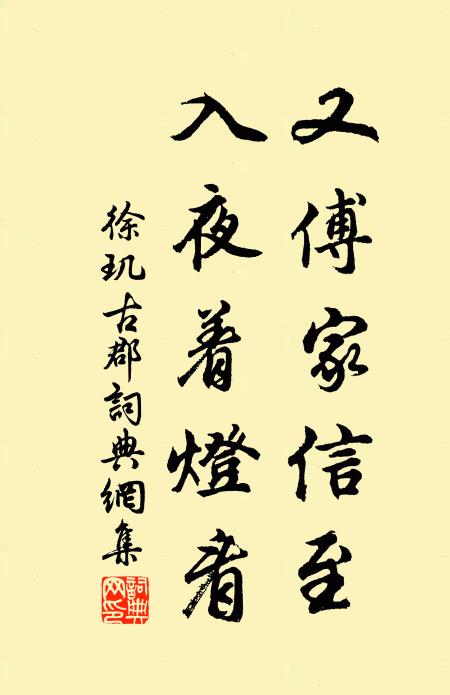 又傅家信至
入夜着燈看
徐玑古郡詞典網集
詞典
网印